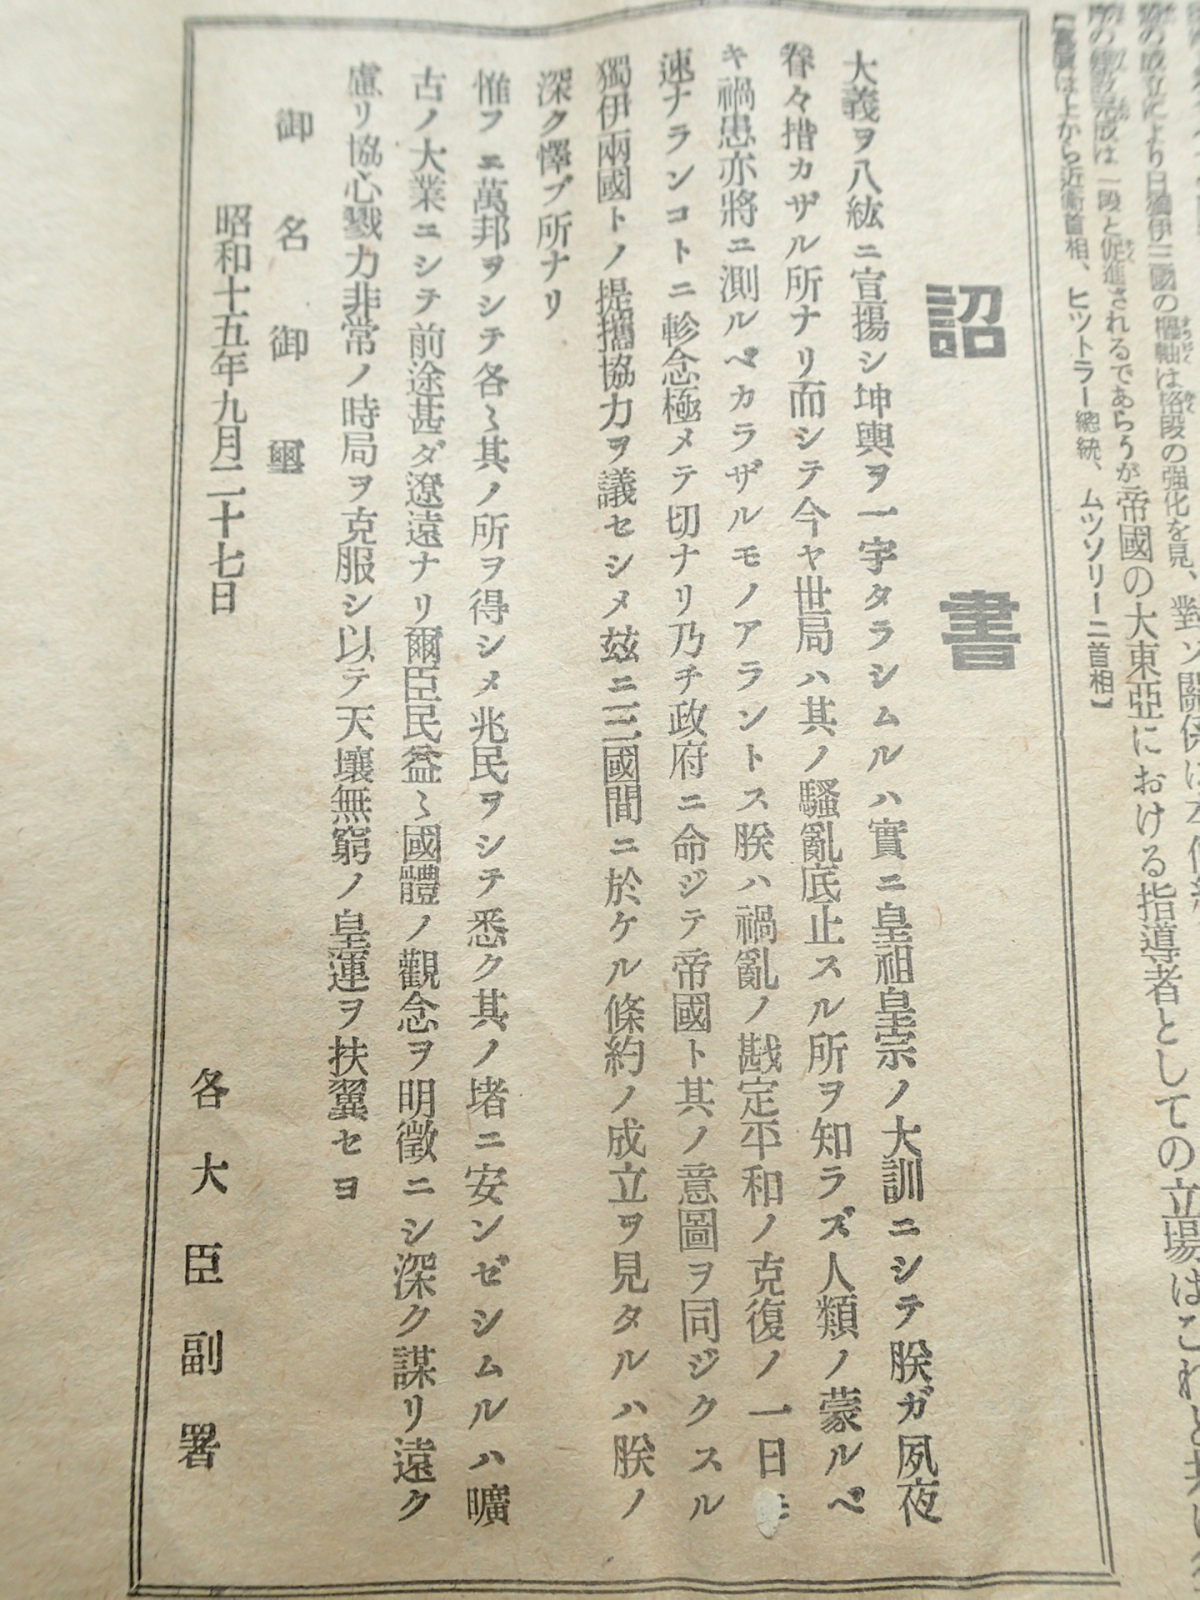 の成立により日獨伊三國の樞軸は格段の強化を見、對ソ關係は
の建設完成は一段と促進されるであらうが帝國の大東亞における指導者としての立場はこれと共に
【寫眞は上から近衞首相、ヒットラー總統、ムッソリーニ首相】
詔書
大義ヲ八紘ニ宣揚シ坤輿ヲ一宇タラシムルハ實ニ皇祖皇宗ノ大訓ニシテ朕ガ夙夜
眷々措カザル所ナリ而シテ今ヤ世局ハ其ノ騷亂底止スル所ヲ知ラズ人類ノ蒙ルベ
キ禍患亦將ニ測ルベカラザルモノアラントス朕ハ禍亂ノ戡定平和ノ克復ノ一日モ
速ナランコトニ軫念極メテ切ナリ乃チ政府ニ命ジテ帝國ト其ノ意圖ヲ同ジクスル
獨伊兩國トノ提攜協力ヲ議セシメ玆ニ三國間ニ於ケル條約ノ成立ヲ見タルハ朕ノ
深ク懌ブ所ナリ
惟フニ萬邦ヲシテ各〻其ノ所ヲ得シメ兆民ヲシテ悉ク其ノ堵ニ安ンゼシムルハ曠
古ノ大業ニシテ前途甚ダ遼遠ナリ爾臣民益〻國體ノ觀念ヲ明徵ニシ深ク謀リ遠ク
慮リ協心戮力非常ノ時局ヲ克服シ以テ天壤無窮ノ皇運ヲ扶翼セヨ
御名御璽
昭和十五年九月二十七日
各大臣副署